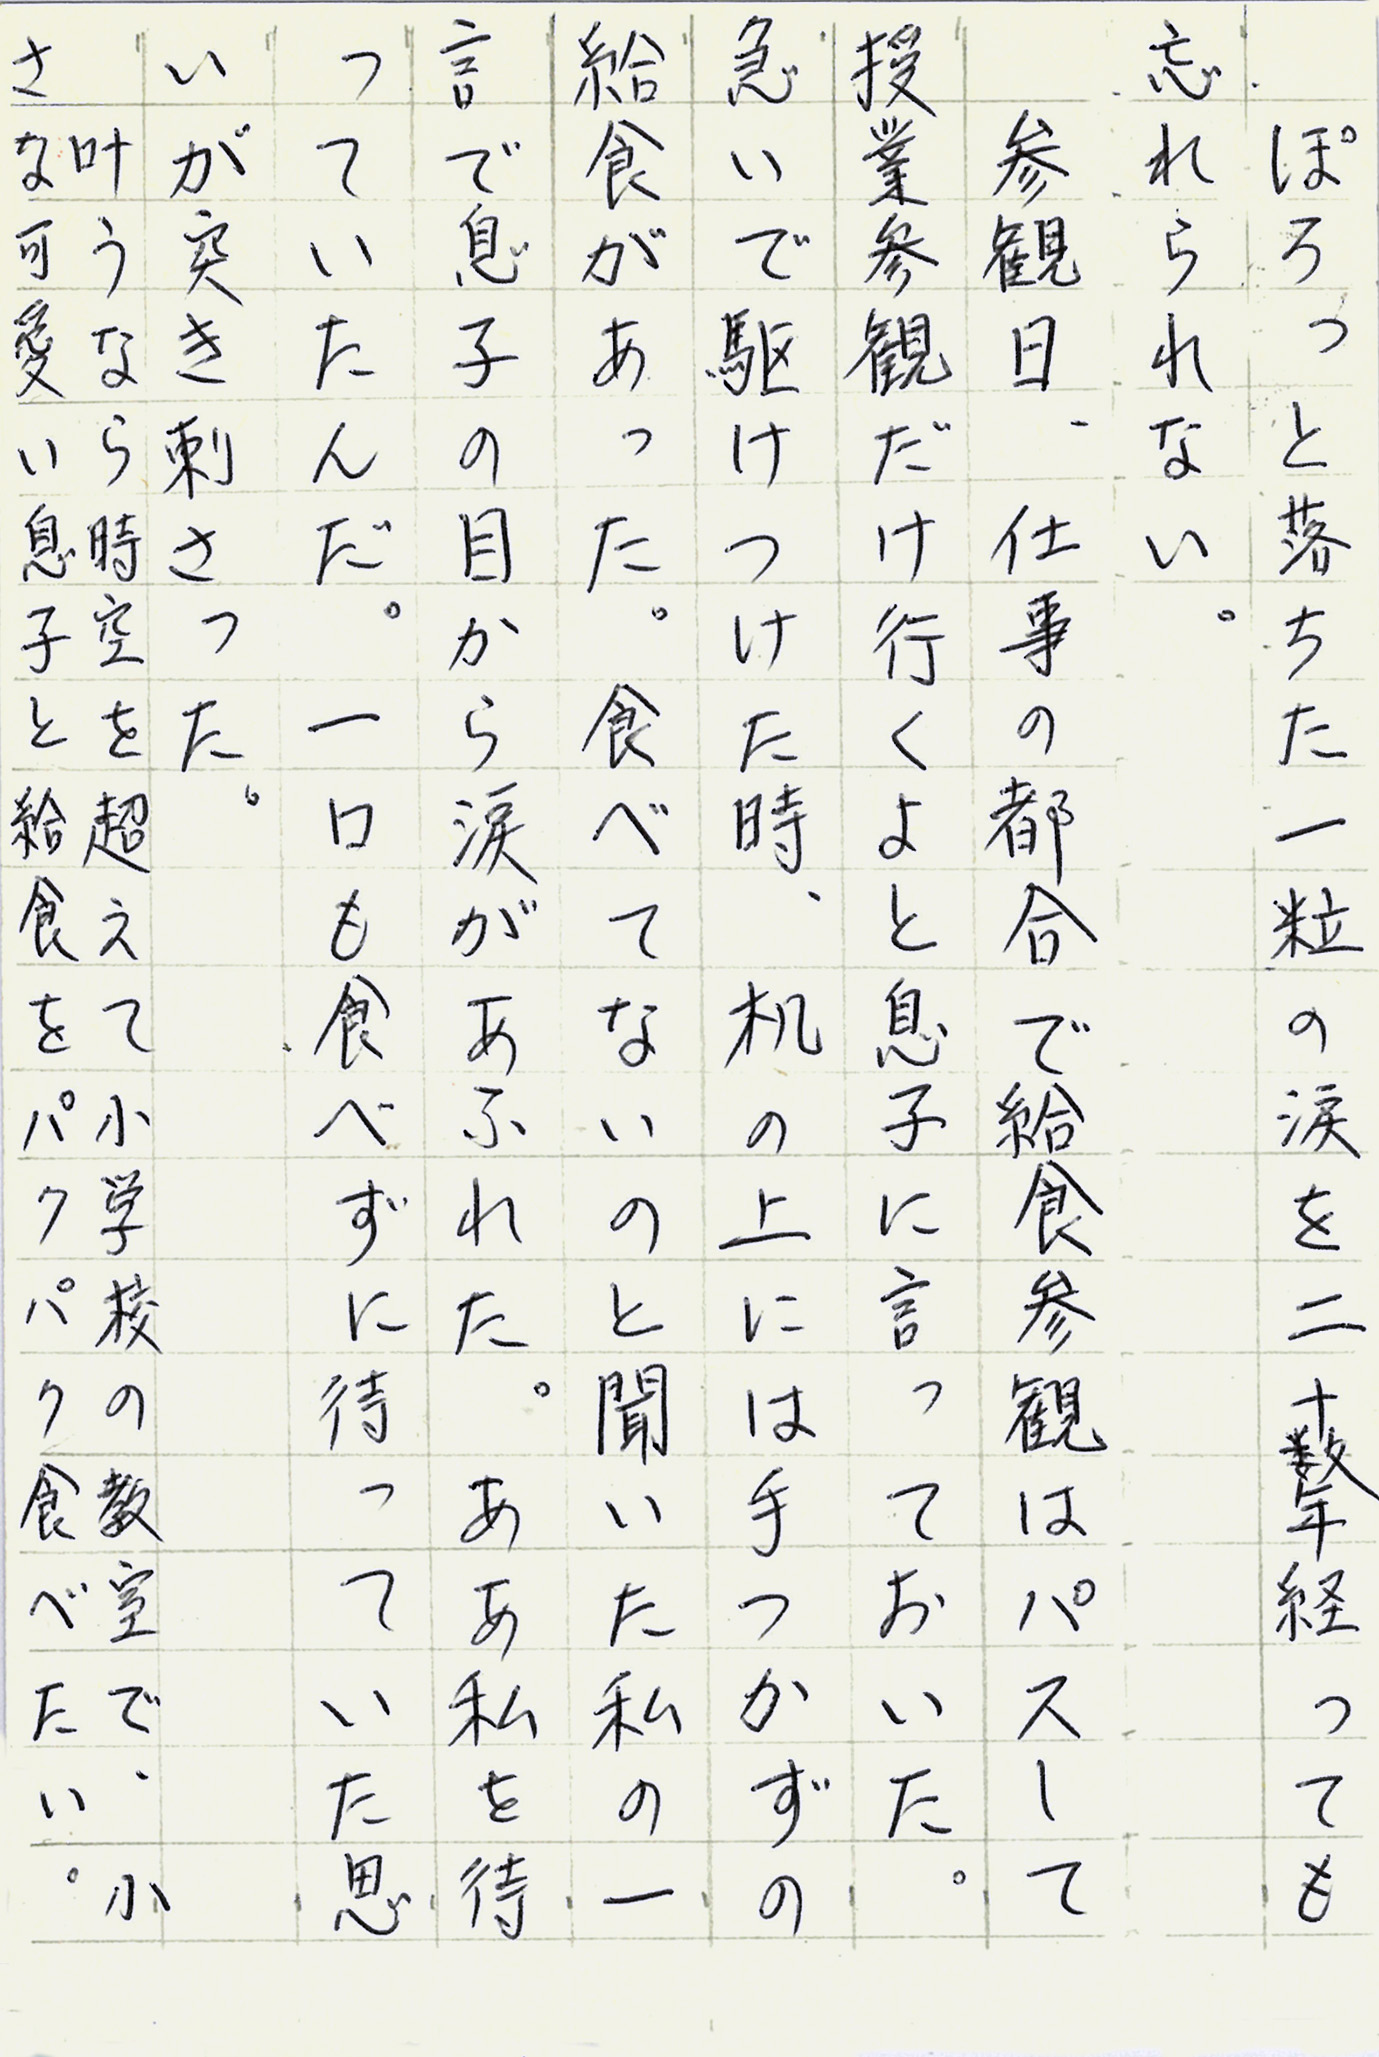 ぽろっと落ちた一粒の涙を二十数年経っても
忘れられない。
参観日、仕事の都合で給食参観はパスして
授業参観だけ行くよと息子に言っておいた。
急いで駆けつけた時、机の上には手つかずの
給食があった。食べてないのと聞いた私の一
言で息子の目から涙があふれた。ああ私を待
っていたんだ。一口も食べずに待っていた思
いが突き刺さった。
叶うなら時空を超えて小学校の教室で、小
さな可愛い息子と給食をパクパク食べたい。